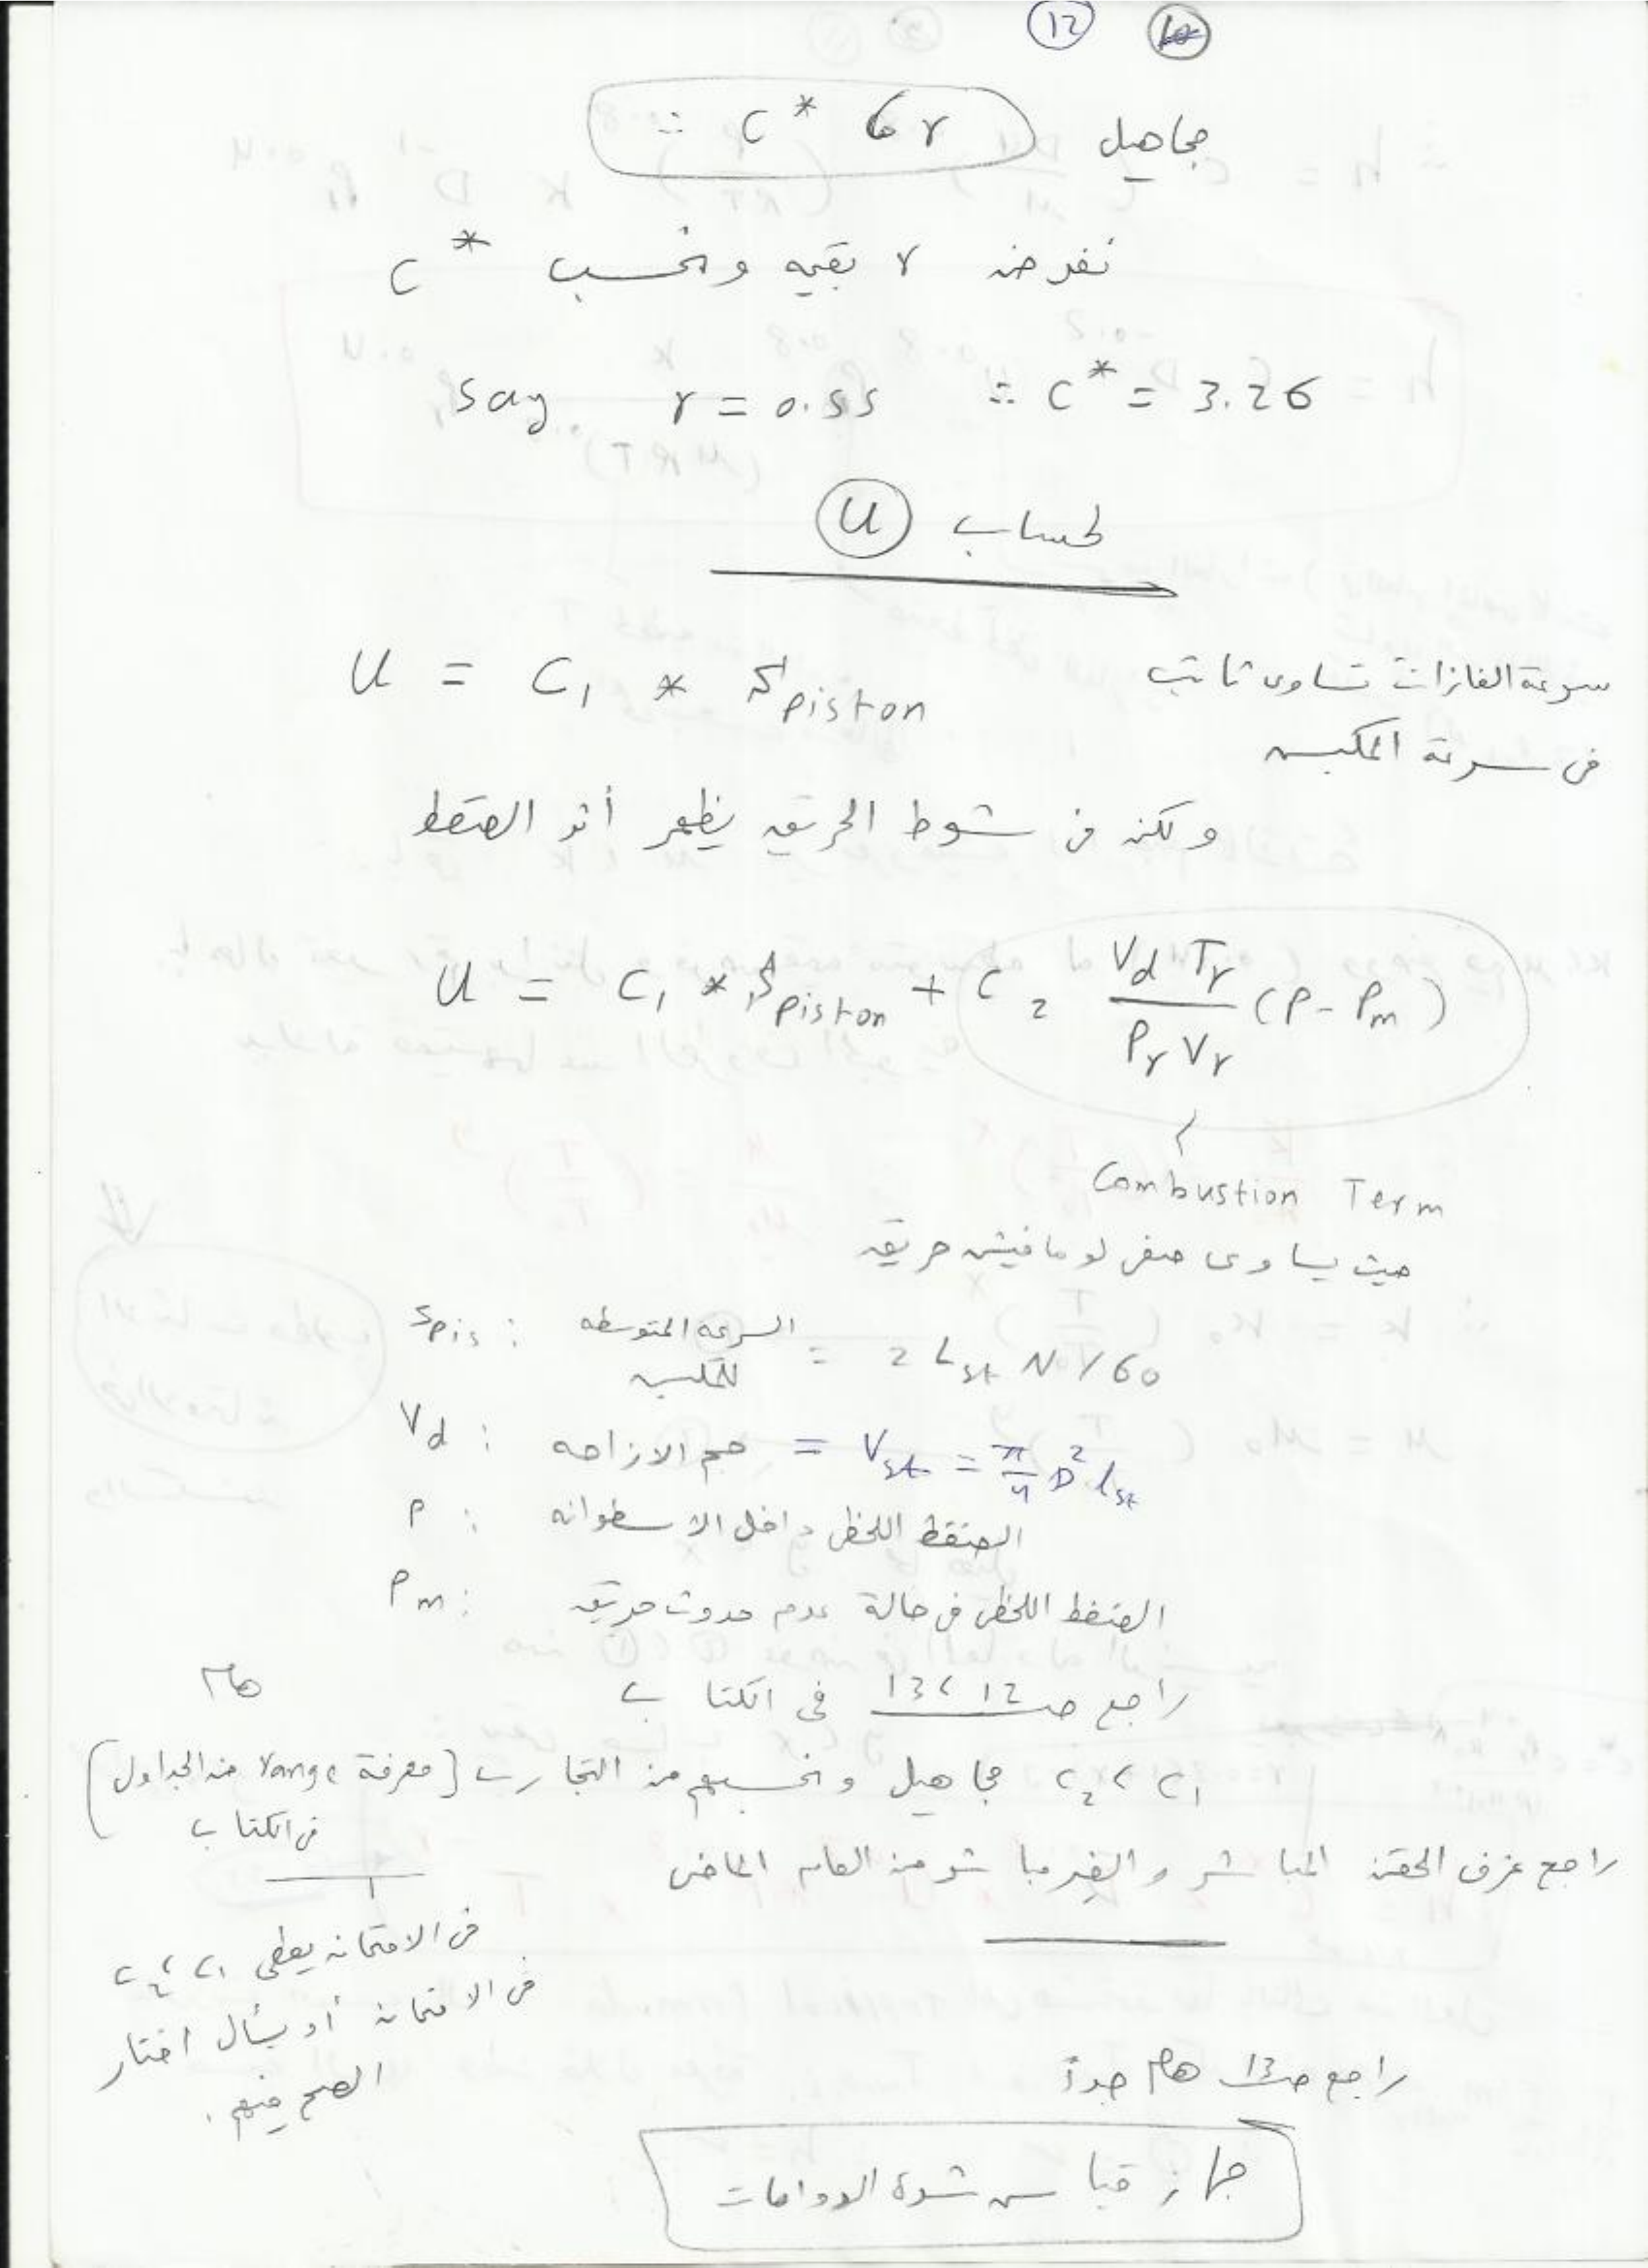 12
∴ C* , r مجاهيل
نفرض r بقيمه ونحسب C*
say r = 0.55 ∴ C* = 3.26
لحساب U
سرعة الغازات تساوى ثابت U = C1 * Spiston
فى سرعة المكبس
ولكن فى شوط الحريق يظهر أثر الضغط
U = C1 * Spiston + C2 (Vd Tr / Pr Vr) (P - Pm)
Combustion Term
حيث يساوى صفر لو مافيش حريق
Spis : السرعه المتوسطه للمكبس = 2 Lst N / 60
Vd : حجم الازاحه = Vst = π/4 D² Lst
P : الضغط اللحظى داخل الاسطوانه
Pm : الضغط اللحظى فى حالة عدم حدوث حريق
راجع صـ 12 ، 13 فى الكتاب هام
C1 ، C2 مجاهيل ونحسبهم من التجارب (معرفة range من الجداول
فى الكتاب)
راجع غرف الحقن المباشر والغير مباشر من العام الماضى
فى الامتحان يعطى C1 ، C2
فى الامتحان أو يسأل اختار
الصح منهم.
راجع صـ 13 هام جداً
جهاز قياس شدة الدوامات